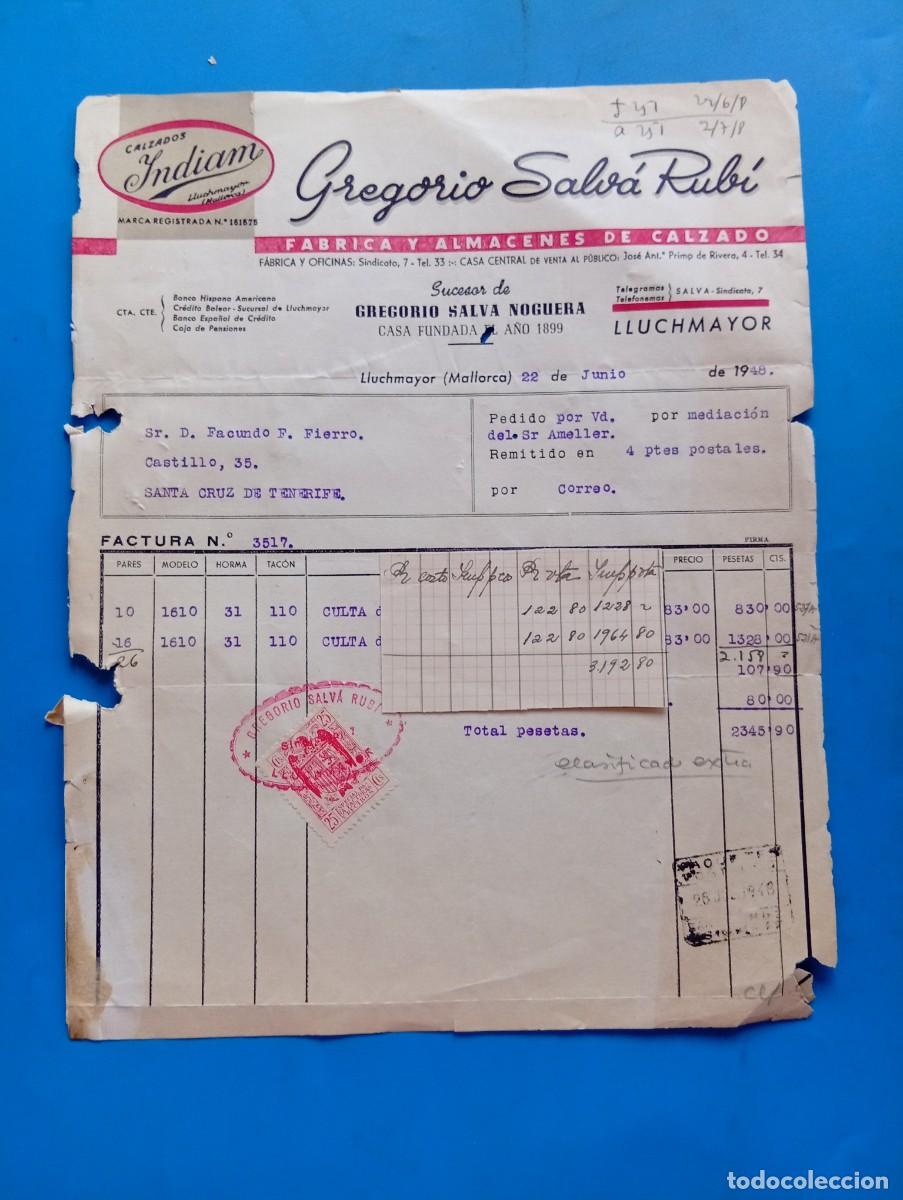 22/6/8
2/7/8
CALZADOS
Indiam
Lluchmayor
(Mallorca)
MARCA REGISTRADA N.º 161575
Gregorio Salvá Rubí
FABRICA Y ALMACENES DE CALZADO
FÁBRICA Y OFICINAS: Sindicato, 7 - Tel. 33 :-: CASA CENTRAL DE VENTA AL PÚBLICO: José Ant.º Primp de Rivera, 4 - Tel. 34
CTA. CTE.
Banco Hispano Americano
Crédito Balear - Sucursal de Lluchmayor
Banco Español de Crédito
Caja de Pensiones
Sucesor de
GREGORIO SALVA NOGUERA
CASA FUNDADA EL AÑO 1899
Telegramas
Telefonemas
SALVA - Sindicato, 7
LLUCHMAYOR
Lluchmayor (Mallorca) 22 de Junio de 1948.
Sr. D. Facundo F. Fierro.
Castillo, 35.
SANTA CRUZ DE TENERIFE.
Pedido por Vd. por mediación
del Sr Ameller.
Remitido en 4 ptes postales.
por Correo.
FACTURA N.º 3517.
FIRMA
PARES MODELO HORMA TACÓN PRECIO PESETAS CTS.
10 1610 31 110 CULTA d 83'00 830'00
16 1610 31 110 CULTA d 83'00 1328'00
26 2.158
107'90
80'00
Total pesetas. 2345'90
122 80 1228
122 80 1964 80
3192 80
clasificad extra
GREGORIO SALVÁ RUBI
25 Cts
25 Cts
ESPECIAL PARA
FACTURAS
1948